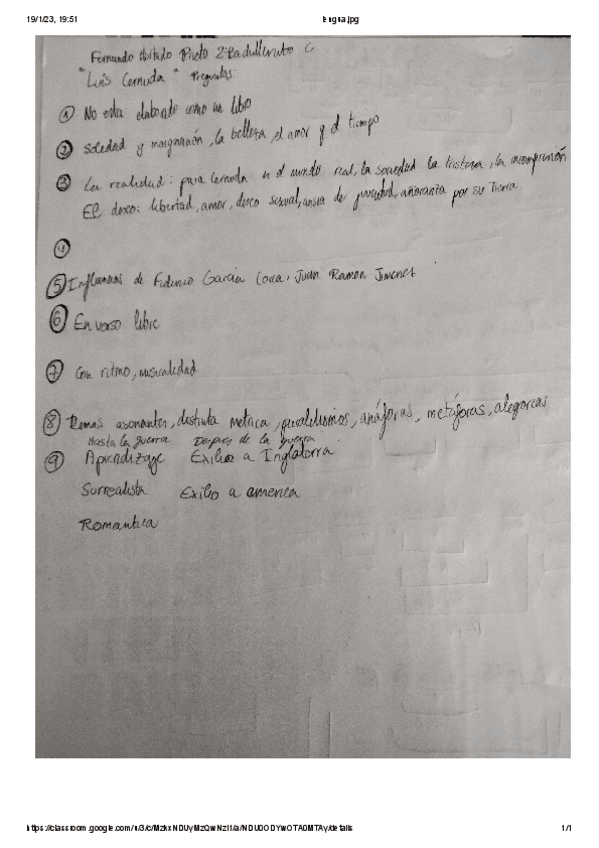 19/1/23, 19:51
lengua.jpg
Fernando Hurtado Prieto 2º Bachillerato C
"Luis Cernuda" Preguntas:
① No esta elaborado como un libro
② Soledad y marginación, la belleza, el amor y el tiempo
③ La realidad: para Cernuda es el mundo real, la sociedad la tristeza, la incomprensión
El deseo: libertad, amor, deseo sexual, ansia de juventud, añoranza por su tierra
④
⑤ Influencias de Federico García Lorca, Juan Ramon Jimenez
⑥ En verso libre
⑦ Con ritmo, musicalidad
⑧ Remas asonantes, distinta metrica, paralelismos, anáforas, metáforas, alegorias
Hasta la guerra Despues de la guerra
⑨ Aprendizaje Exilio a Inglaterra
Surrealista Exilio a america
Romantica
1/1